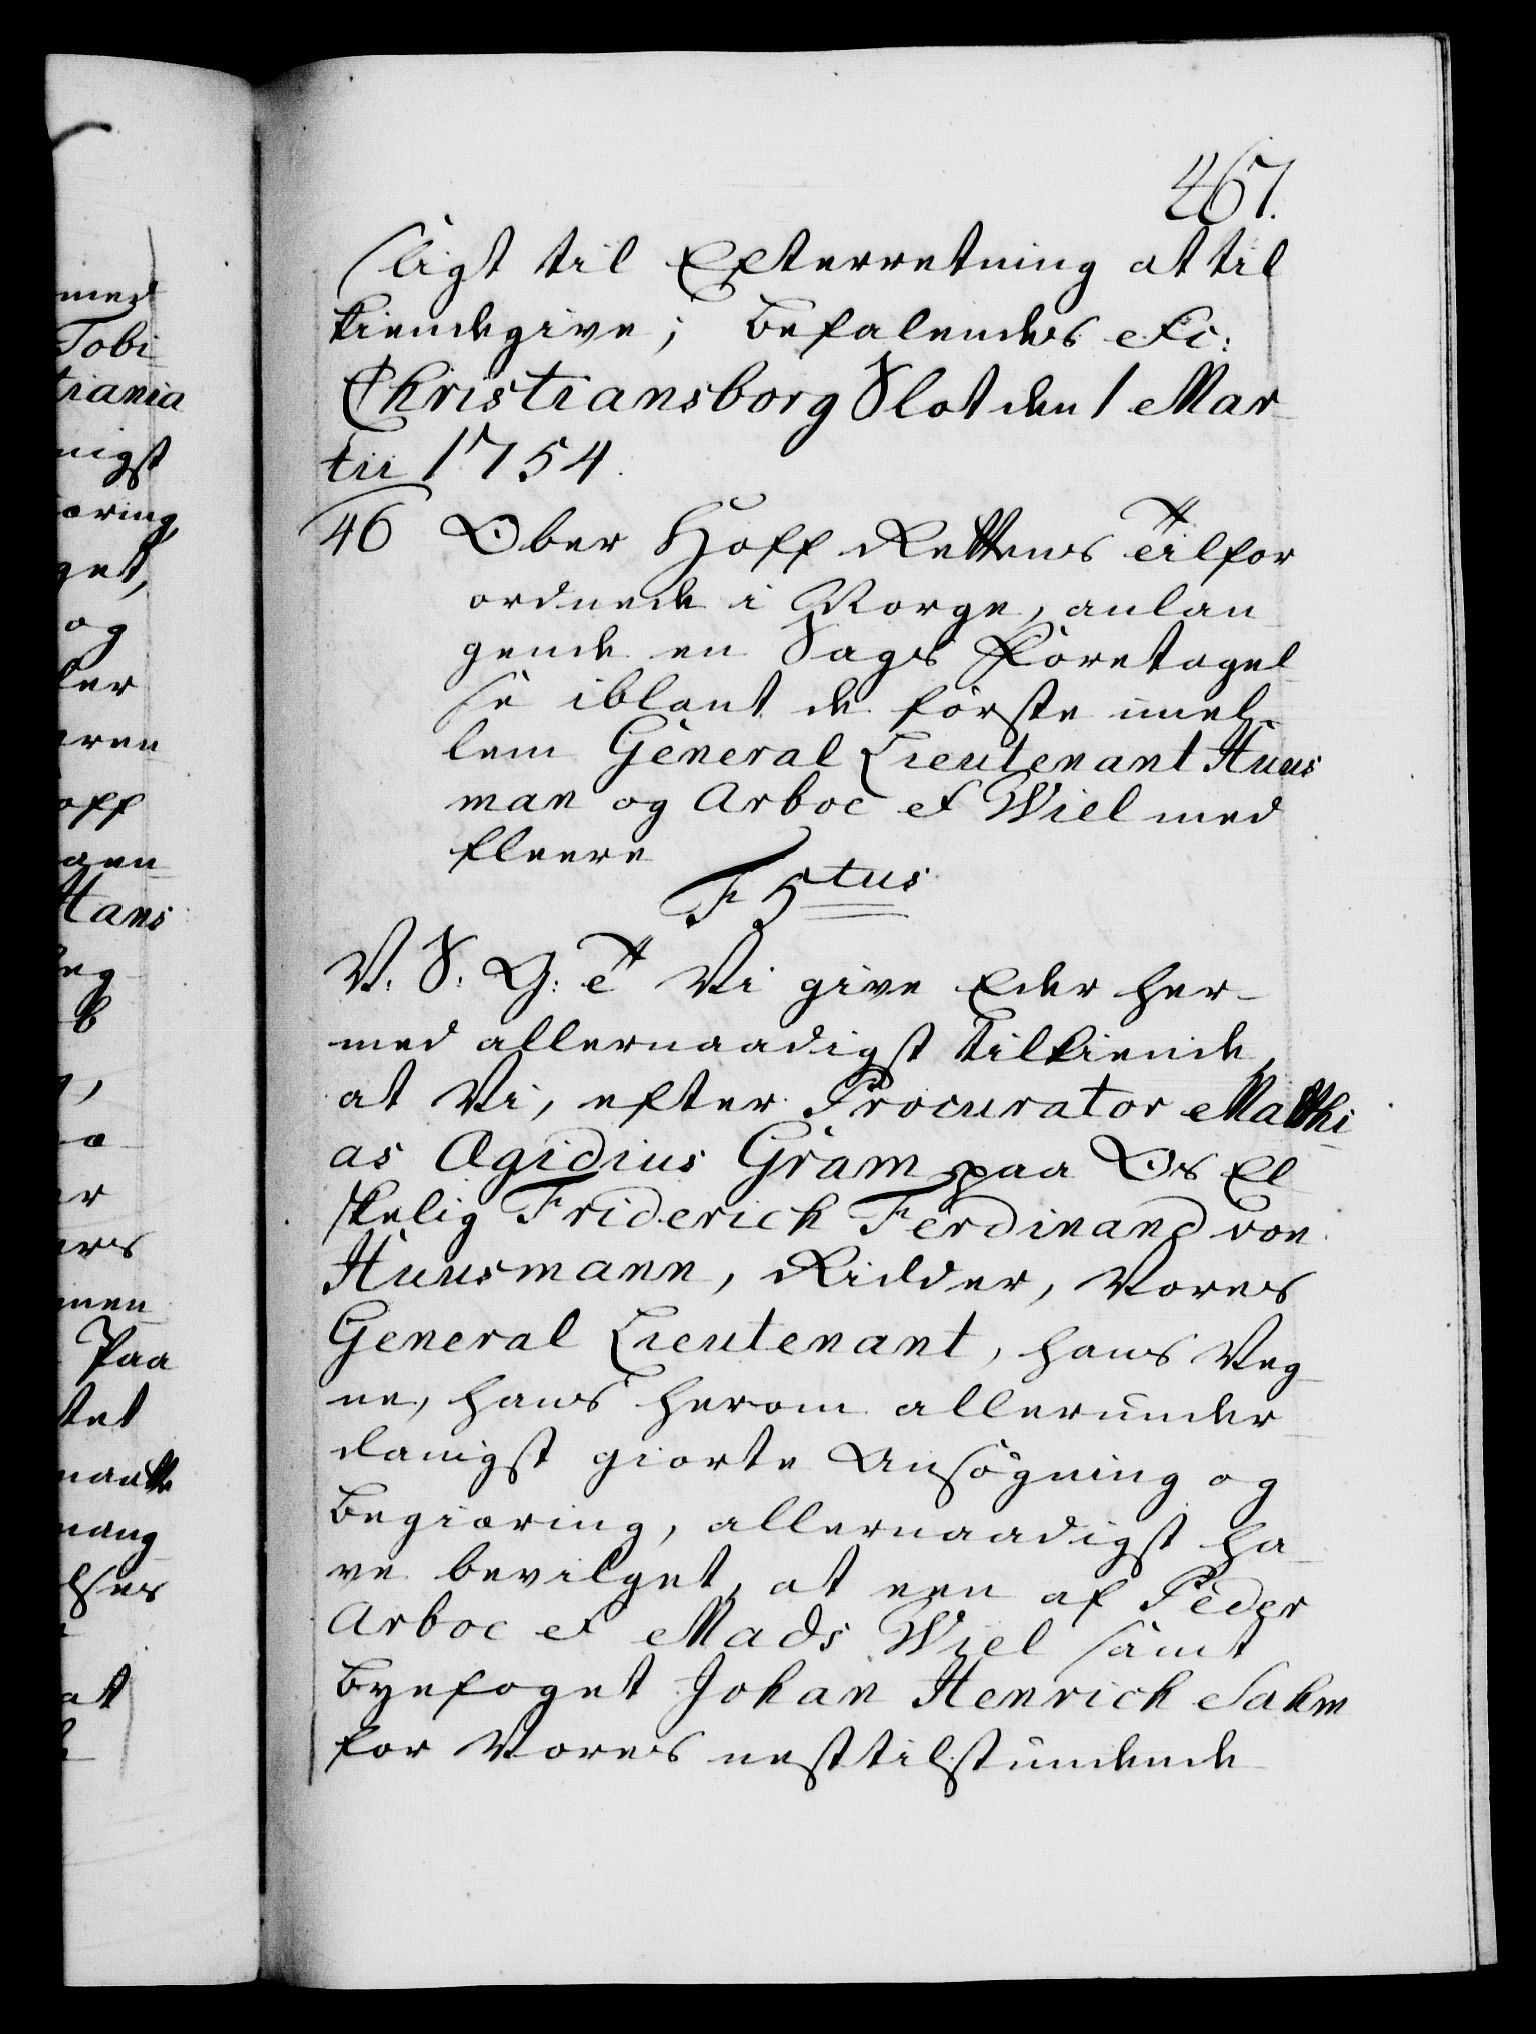 467.
sligt til Efterretning at til
kiendegive; Befalendes etc:
Christiansborg Slot den 1 Mar
tii 1754.
46 Ober Hoff Rettens Tilfor
ordnede i Norge, anlan
gende en Sags Foretagel
se iblant de første imel
lem General Lieutenant Huus
man og Arboe et Wiel med
fleere
F 5tus
V. S. G: et Vi give Eder her-
med allernaadigst tilkiende,
at Vi, efter Procurator Matthi
as Ægidius Gram paa Os El
skelig Friderich Ferdinand von
Huusmann, Ridder, Vores
General Lieutenant, hans Veg
ne, hans herom allerunder
danigst giorte Ansøgning og
Begiæring, allernaadigst ha
ve bevilget, at een af Peder
Arboe et Mads Wiel samt
Byefoget Johan Henrich Sahm
for Vores nesttilstundende
med
Tobi
tiania
nigst
æring,
get,
og
ler
eren
off
gen
Hans
eg
b
a
er
ers
men
Paa
tet
maatte
mang
lses
at